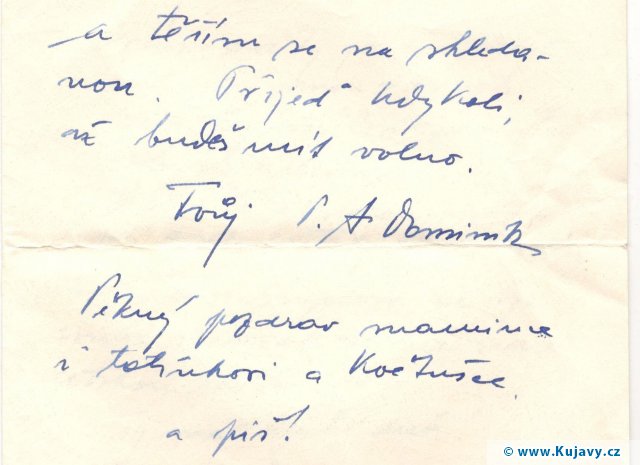 a těším se na shleda-
nou. Přijeď kdykoli,
až budeš mít volno.
Tvůj P. A Dominik
Pěkný pozdrav mamince
i tatínkovi a
a piš!
© www.Kujavy.cz